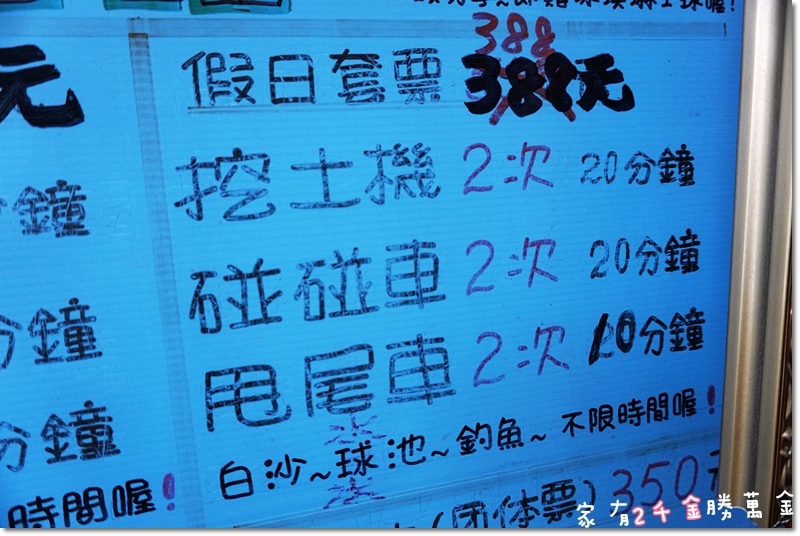 元
假日套票 388元
388
挖土機 2次 20分鐘
鐘
碰碰車 2次 20分鐘
分鐘
甩尾車 2次 10分鐘
分鐘
白沙~球池~釣魚~不限時間喔!
時間喔!
(团体票) 350元
家有2千金勝萬金